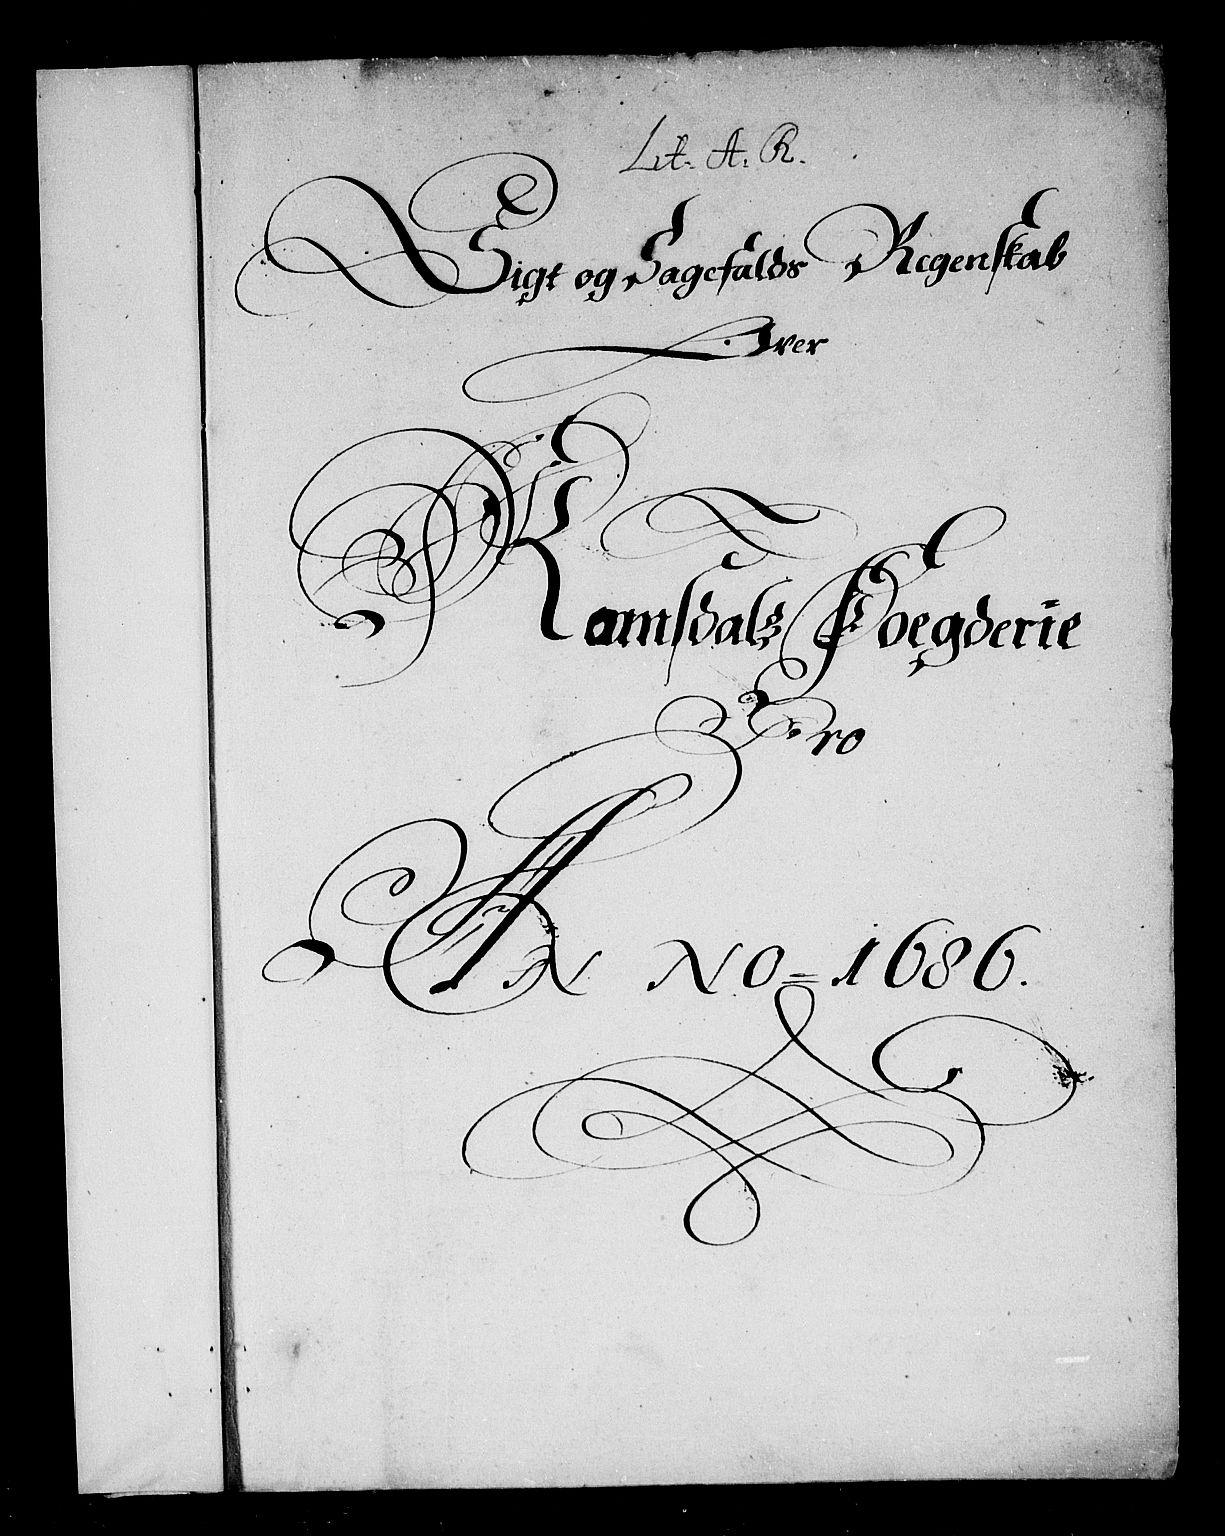 Lit. A. R.
Sigt og Sagefalds Regenskab
Over
Romsdals Foegderie
Pro
ANNO = 1686.